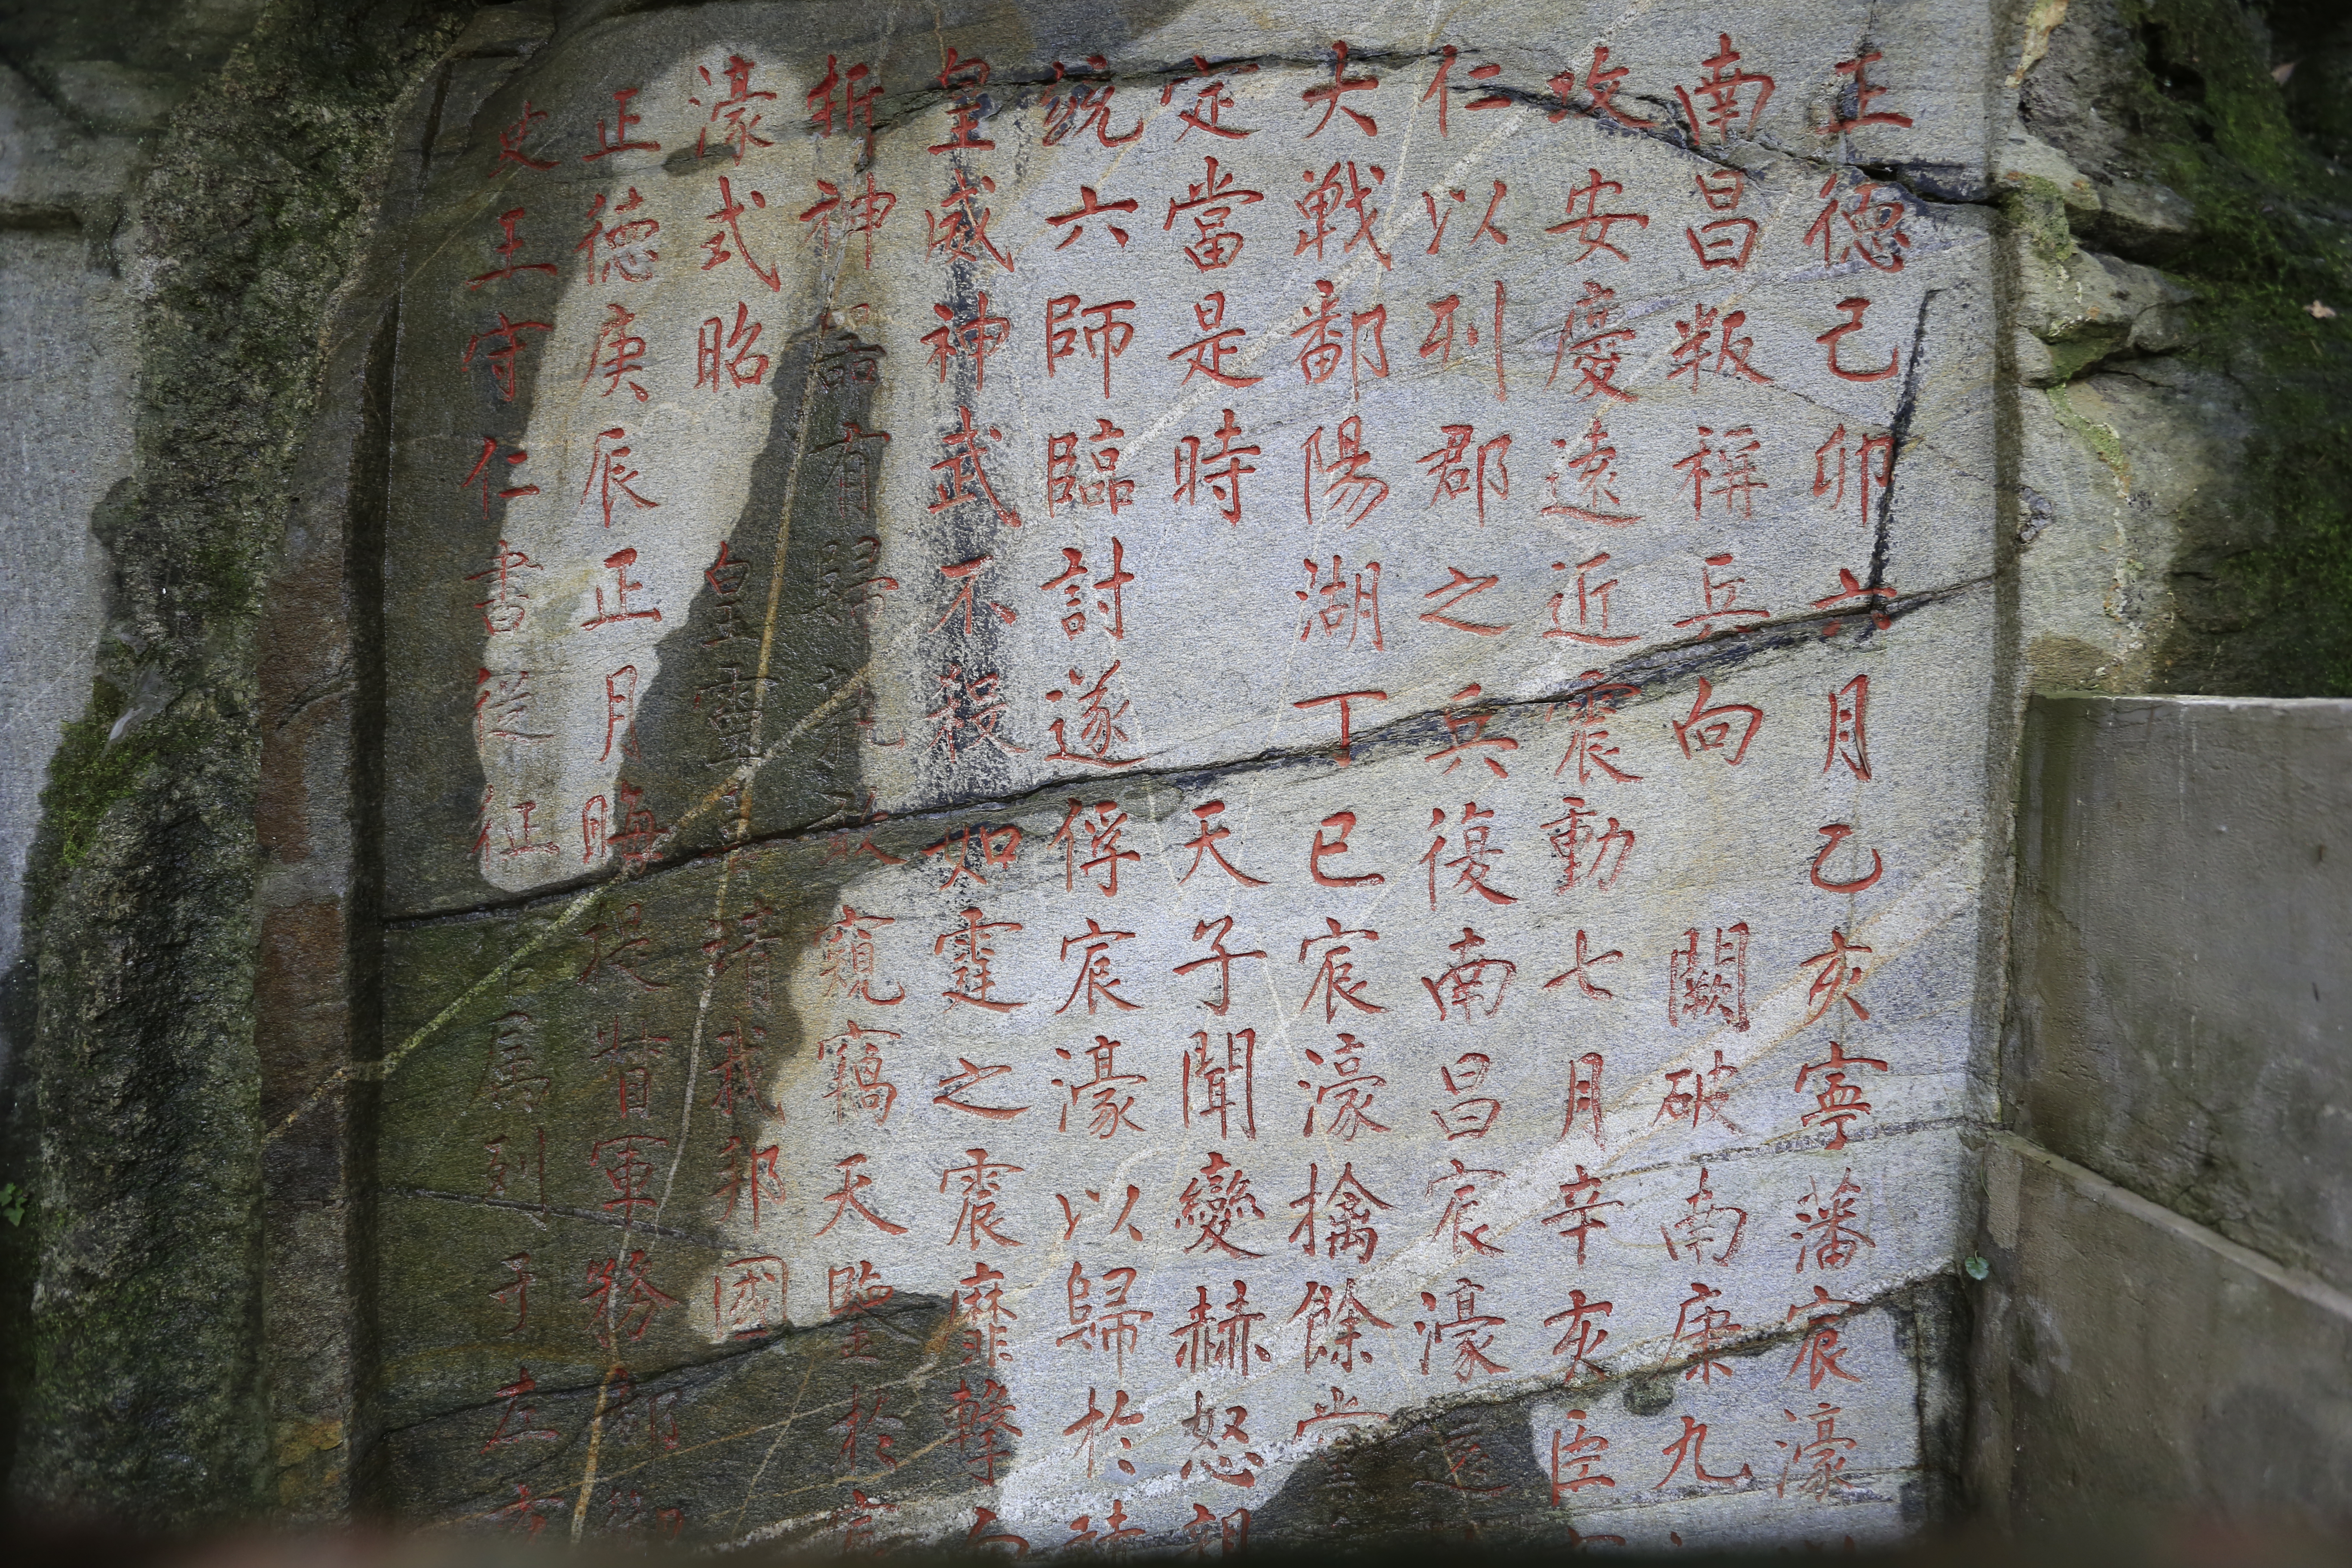 正德己卯六月乙亥寧藩宸濠
南昌叛稱兵向闕破南康九
攻安慶遠近震動七月辛亥臣
仁以列郡之兵復南昌宸濠還
大戰鄱陽湖丁巳宸濠擒餘黨
定當是時天子聞變赫怒親
統六師臨討遂俘宸濠以歸於
皇威神武不殺如霆之震靡擊
折神器有歸孰敢窺竊天鑒於宸
濠式昭皇靈嘉靖我邦國
正德庚辰正月晦提督軍務都御
史王守仁書從征官屬列于左方